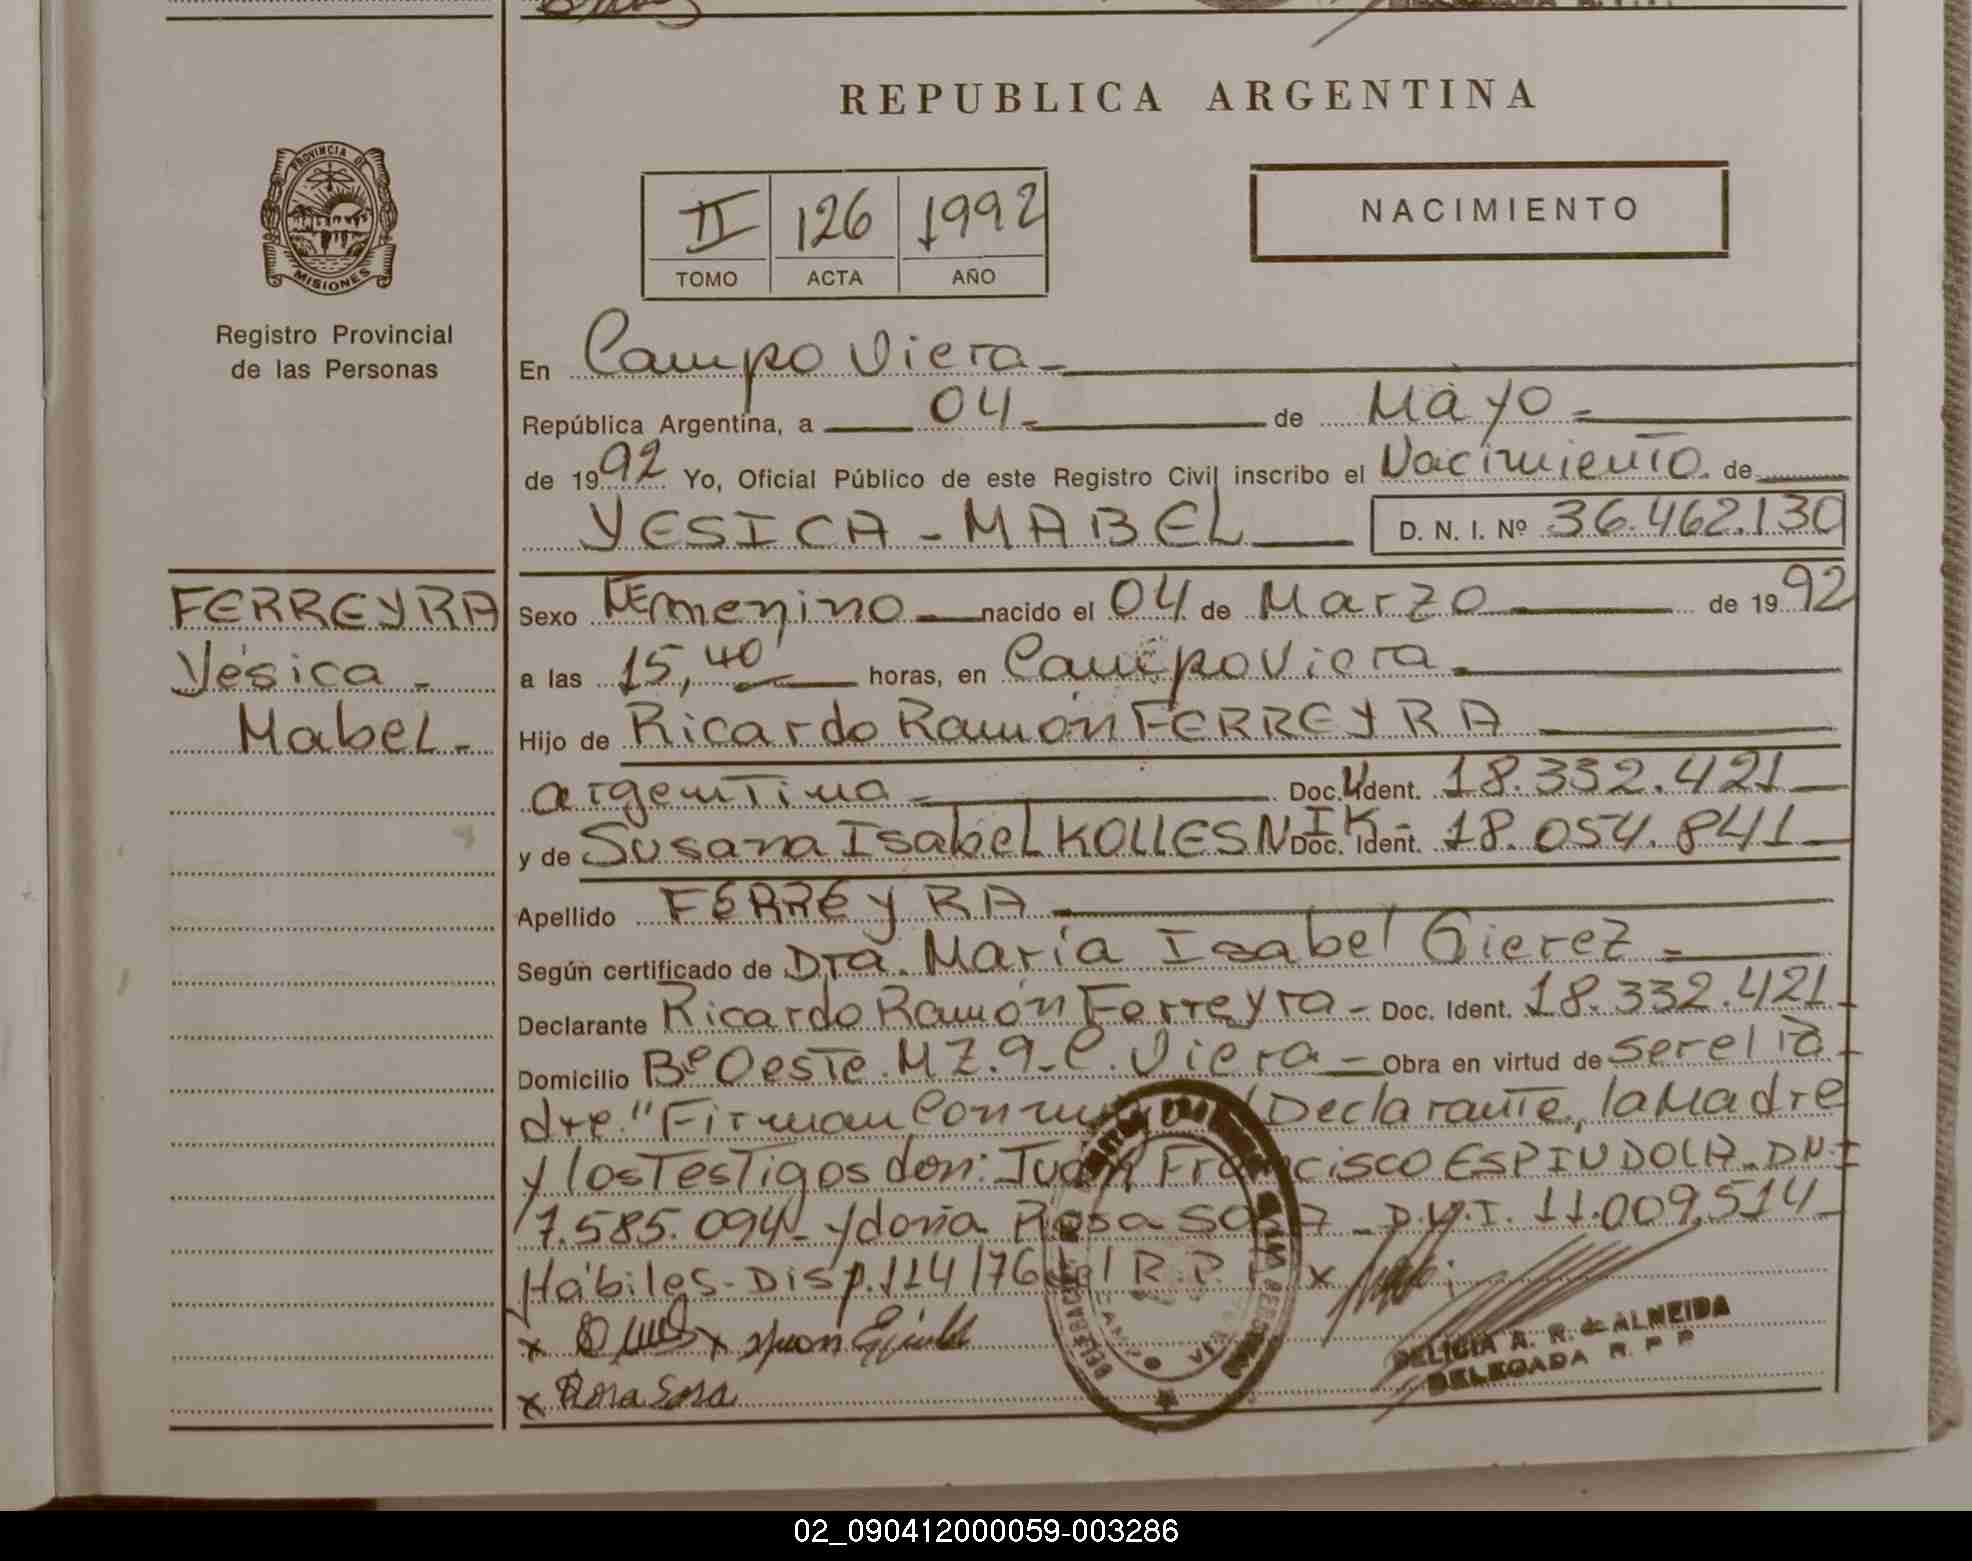 REPUBLICA ARGENTINA
PROVINCIA DE
MISIONES
Registro Provincial
de las Personas
II 126 1992
TOMO ACTA AÑO
NACIMIENTO
En Campo Viera
República Argentina, a 04 de Mayo
de 1992 Yo, Oficial Público de este Registro Civil inscribo el Nacimiento de
YESICA - MABEL D. N. I. Nº 36.462.130
FERREYRA
Yésica
Mabel
Sexo Femenino nacido el 04 de Marzo de 1992
a las 15,40 horas, en Campo Viera
Hijo de Ricardo Ramón FERREYRA
argentino Doc. Ident. 18.332.421
y de Susana Isabel KOLLESNIK Doc. Ident. 18.054.841
Apellido FERREYRA
Según certificado de Dra. María Isabel Gierez
Declarante Ricardo Ramón Ferreyra Doc. Ident. 18.332.421
Domicilio Bº Oeste. MZ. 9 - C. Viera Obra en virtud de ser el pa
dre." Firman Conmigo el Declarante, la Madre
y los Testigos don: Juan Francisco ESPINDOLA DNI
7.585.094 y doña Rosa SOSA D.N.I. 11.009.514
Hábiles - Disp. 114/76 del R.P.P. x
x x Juan
x Rosa Sosa
DELICIA A. R. de ALMEIDA
DELEGADA R. P. P.
02_090412000059-003286